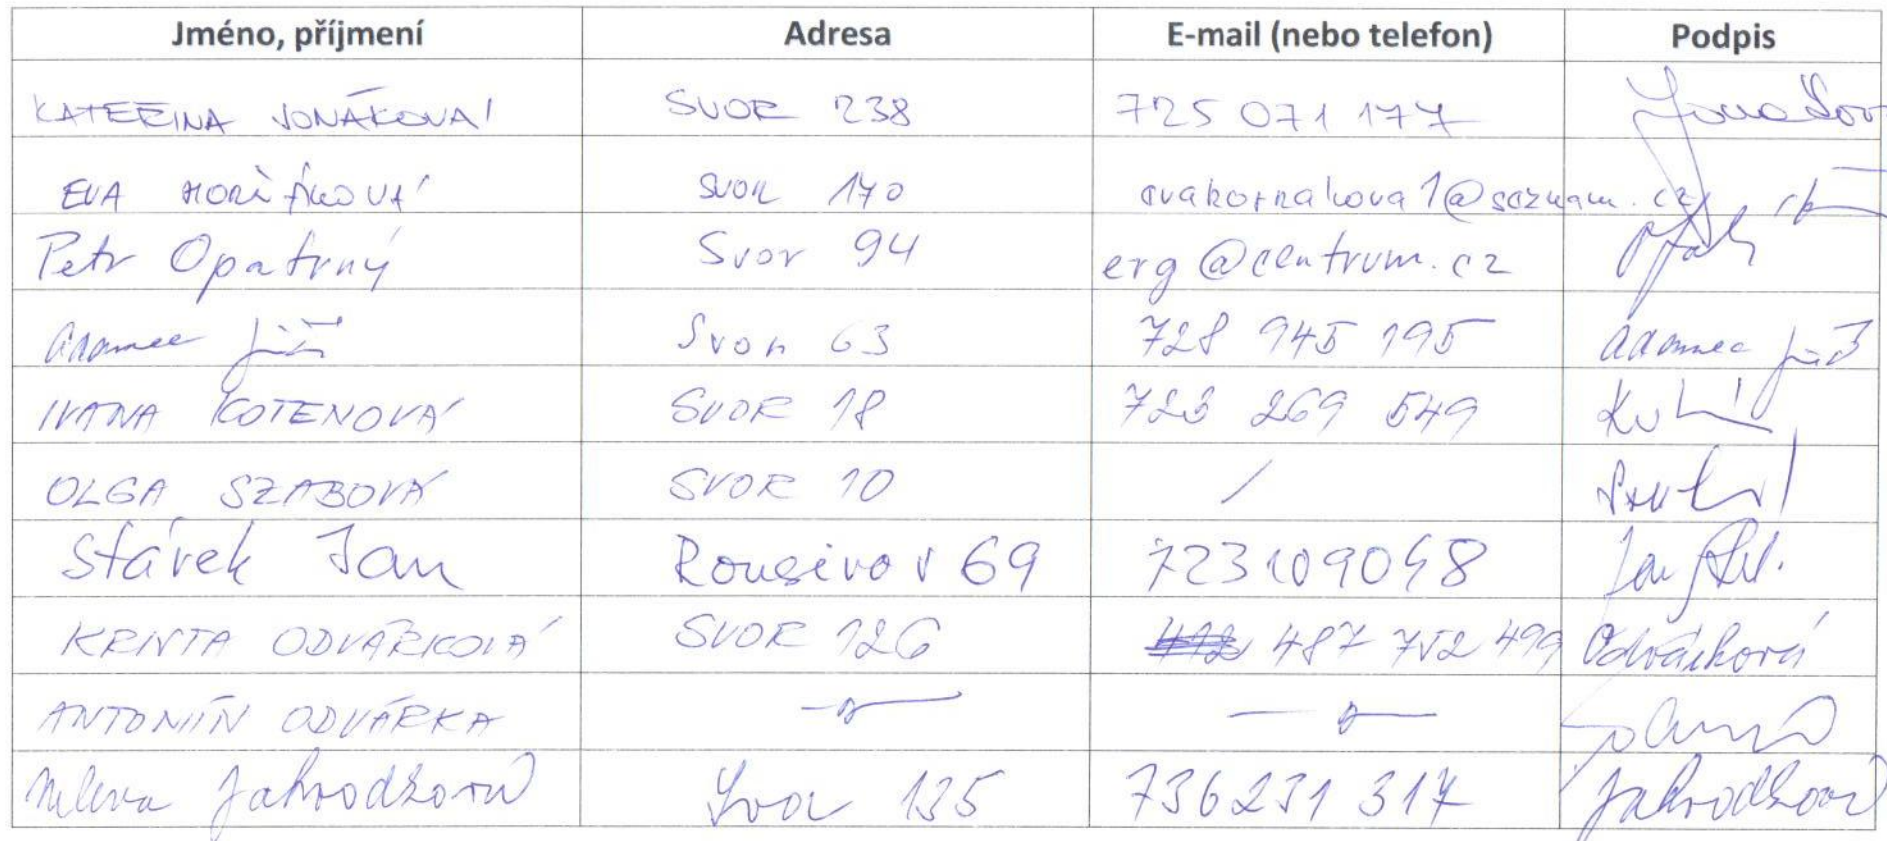 Jméno, příjmení Adresa E-mail (nebo telefon) Podpis
KATEŘINA JONÁKOVÁ SVOR 238 725 071 177
EVA SVOR 170
Petr Opatrný Svor 94 erg@centrum.cz
Adamec Jiří Svor 63 728 945 195 Adamec Jiří
IVANA KOTENOVÁ SVOR 18 723 269 549
OLGA SZABOVÁ SVOR 10 /
Stárek Jan 69 Jan
ODVÁRKOVÁ SVOR 126 487 752 499 Odvárková
ANTONÍN ODVÁRKA
Milena Jahodková Svor 135 736 231 317 Jahodková